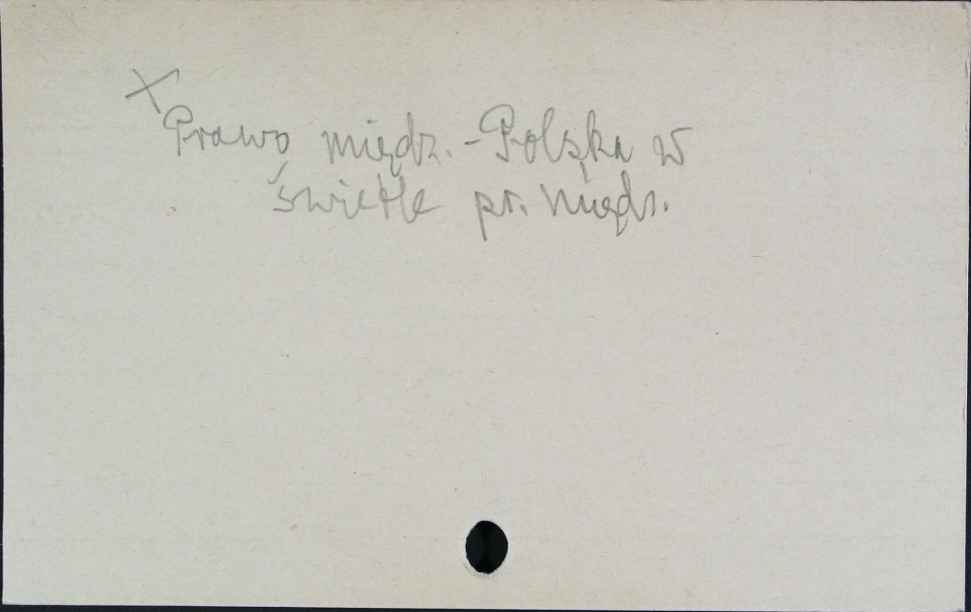 X
Prawo międz. - Polska w
świetle pr. międz.